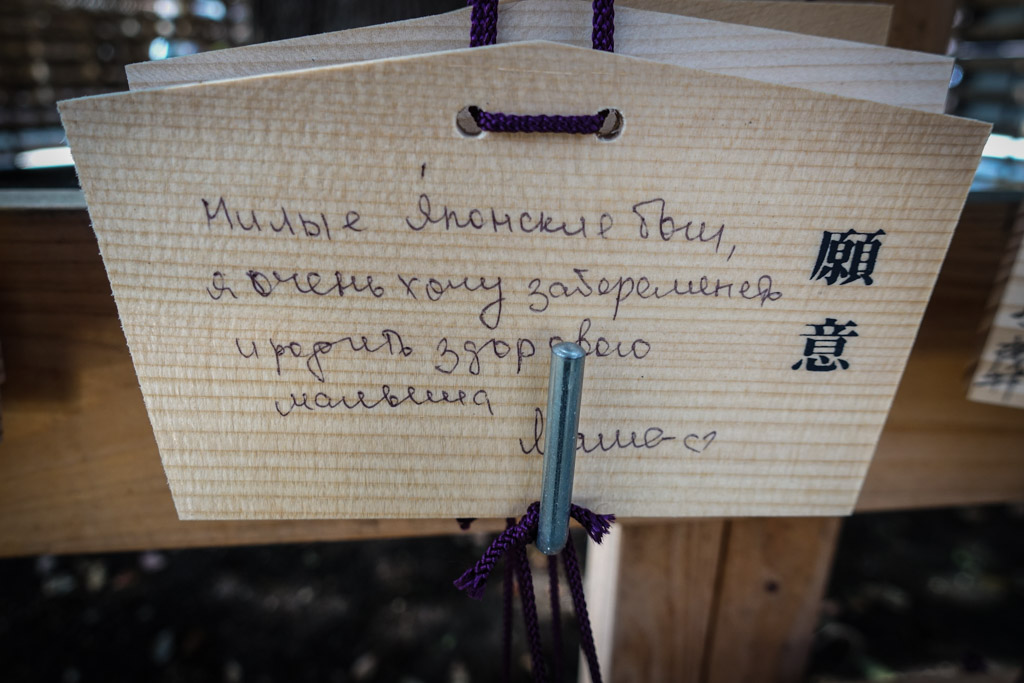 Милые Японские Боги,
я очень хочу забеременеть
и родить здорового
малыша
願意